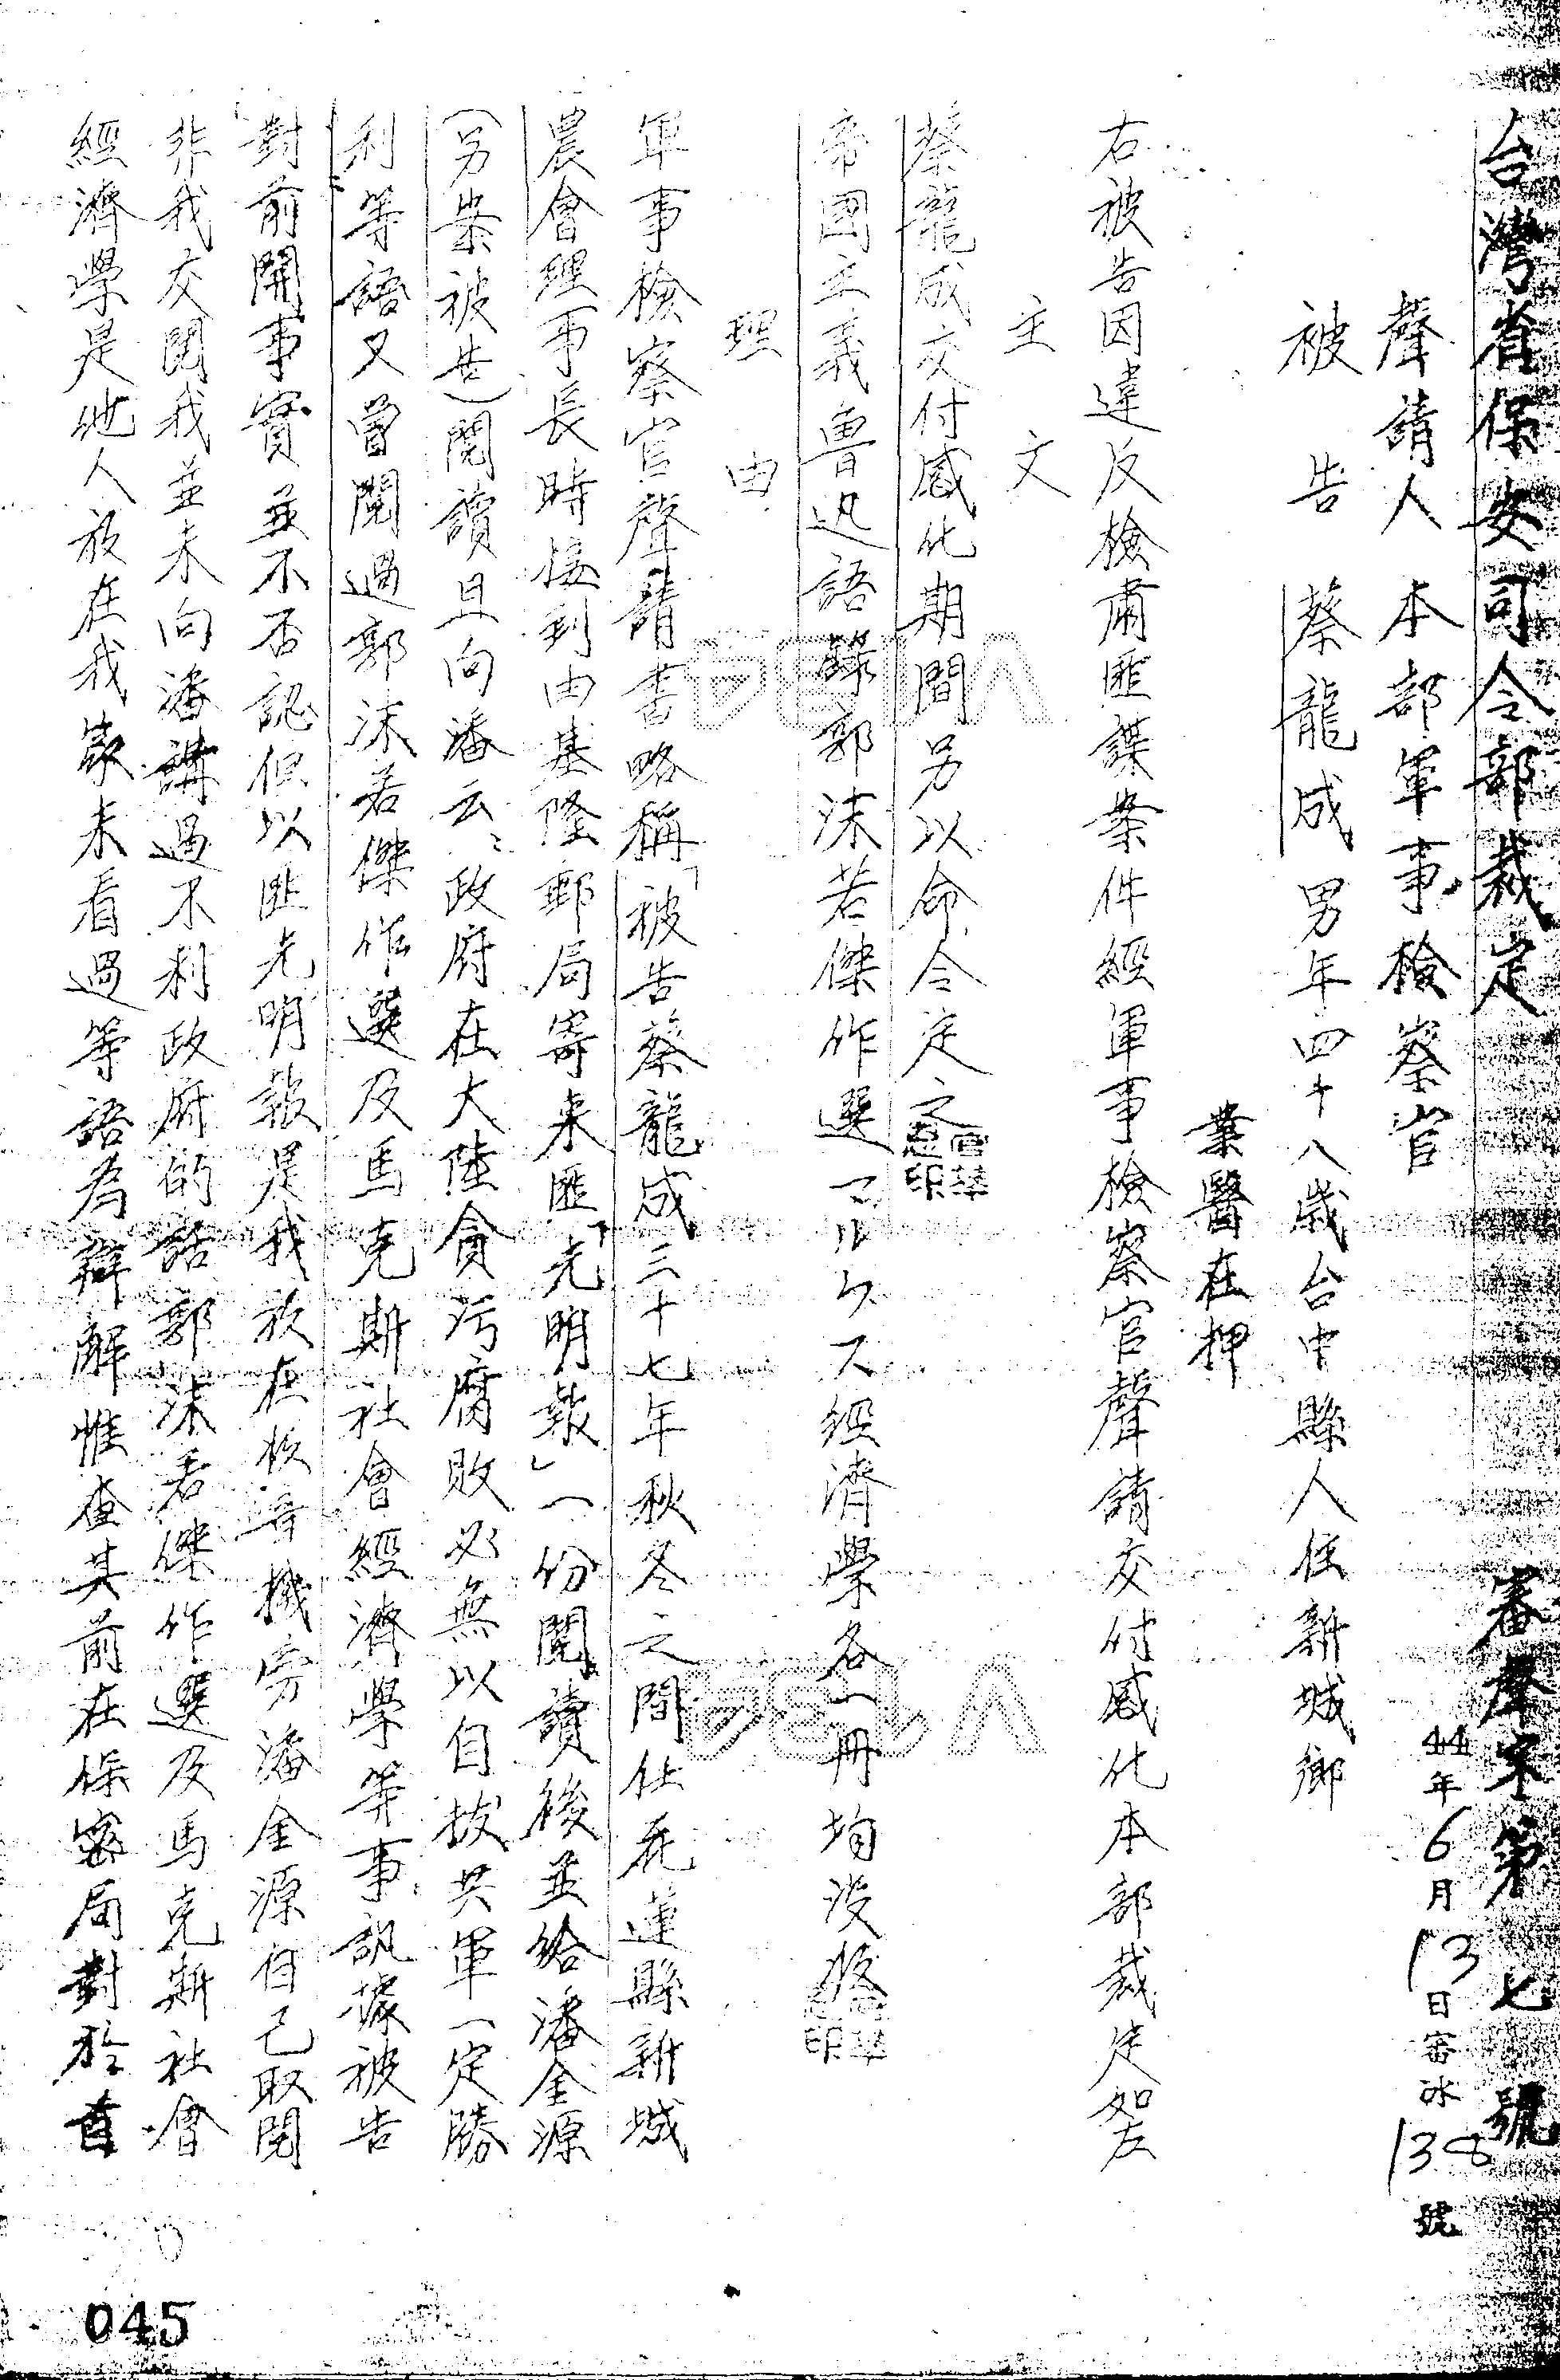 台灣省保安司令部裁定　審聲字第七號
44年6月13日審冰138號
聲請人　本部軍事檢察官
被告　蔡龍成　男年四十八歲台中縣人住新城鄉
業醫在押
右被告因違反檢肅匪諜案件經軍事檢察官聲請交付感化本部裁定如左
主文
蔡龍成交付感化期間另以命令定之
帝國主義魯迅語錄郭沫若傑作選マルクス經濟學各一冊均沒收
理由
軍事檢察官聲請書略稱「被告蔡龍成三十七年秋冬之間任花蓮縣新城
農會理事長時接到由基隆郵局寄來匪「光明報」一份閱讀後並給潘金源
(另案被告)閱讀且向潘云、政府在大陸貪污腐敗必無以自拔共軍一定勝
利等語又曾閱過郭沫若傑作選及馬克斯社會經濟學等事訊據被告
對前開事實並不否認但以匪光明報是我放在收音機旁潘金源自己取閱
非我交閱我並未向潘講過不利政府的話郭沫若傑作選及馬克斯社會
經濟學是他人放在我家未看過等語為辯解惟查其前在保密局對於首
045
V134
V134